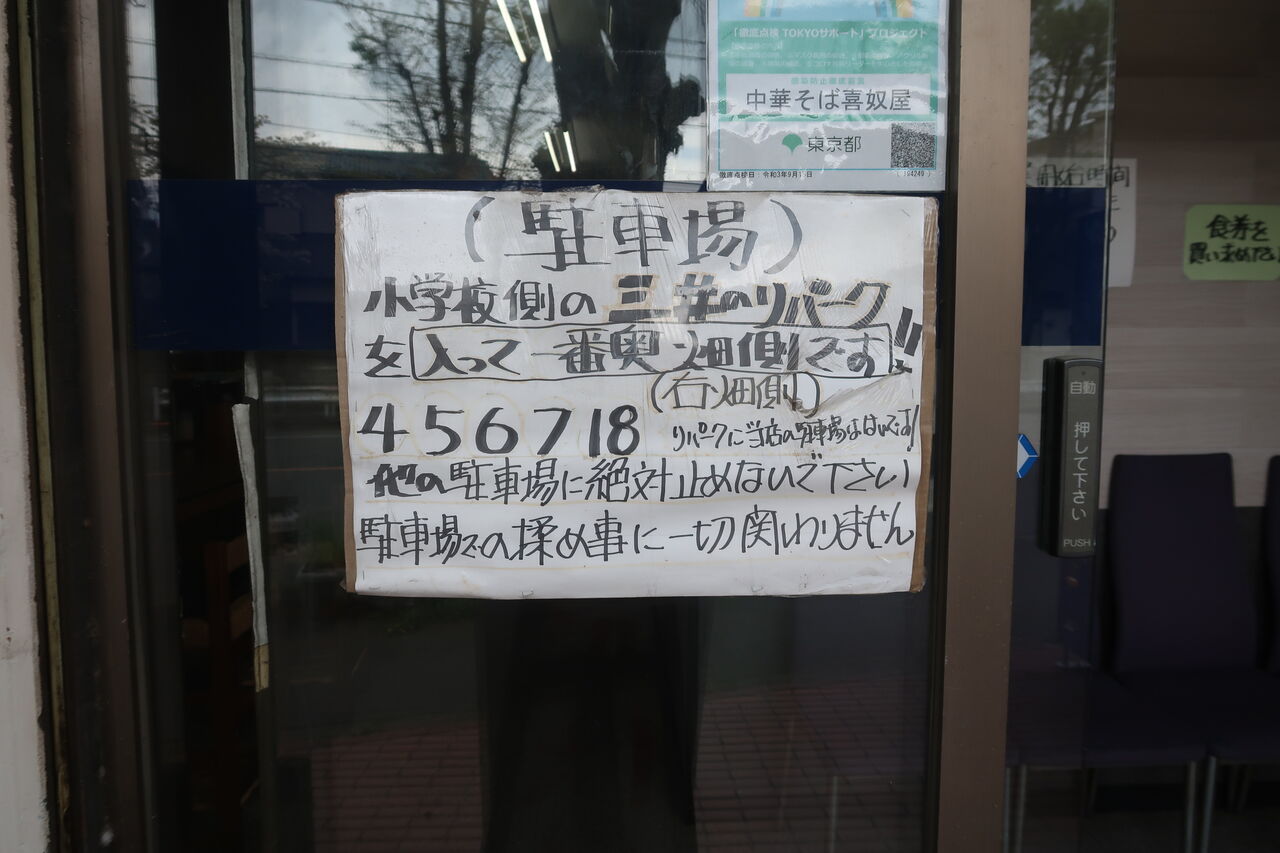 「徹底点検 TOKYOサポート」プロジェクト
感染防止徹底宣言
中華そば喜奴屋
東京都
徹底点検日 令和3年9月1日
(194249)
(駐車場)
小学校側の三井のリパーク
を入って一番奥畑側です!!
(右畑側)
4 5 6 7 18 リパークに当店の駐車場は
他の駐車場に絶対止めないで下さい
駐車場での揉め事に一切関わりません
食券を
買い求め下さい
自動
押して下さい
PUSH